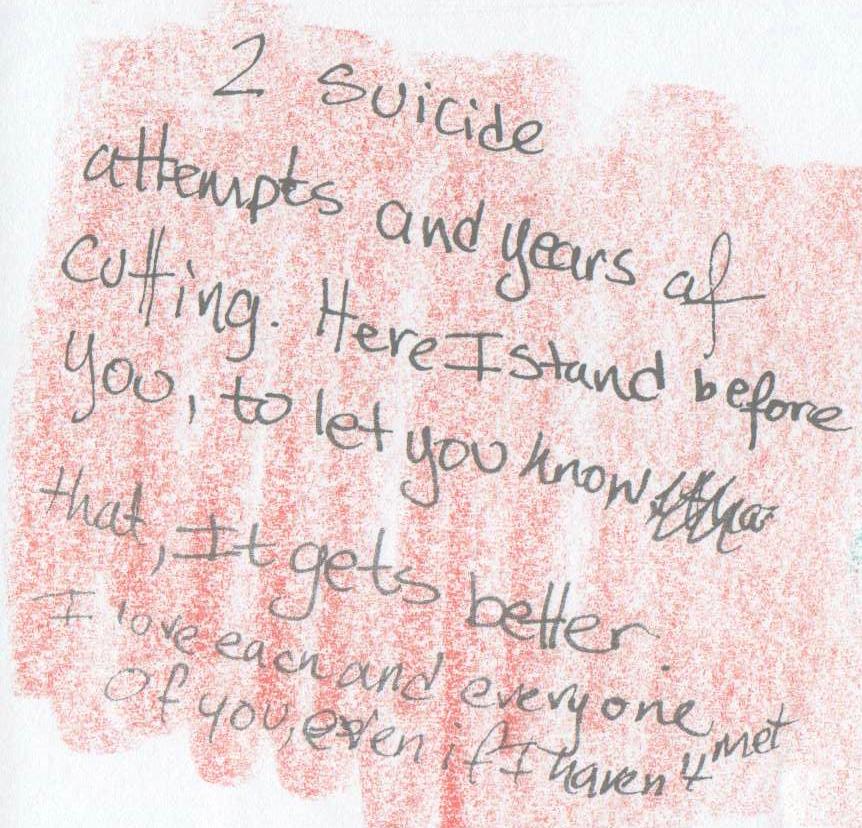 2 suicide
attempts and years of
cutting. Here I stand before
you, to let you know
that, It gets better.
I love each and everyone
Of you, even if I haven't met